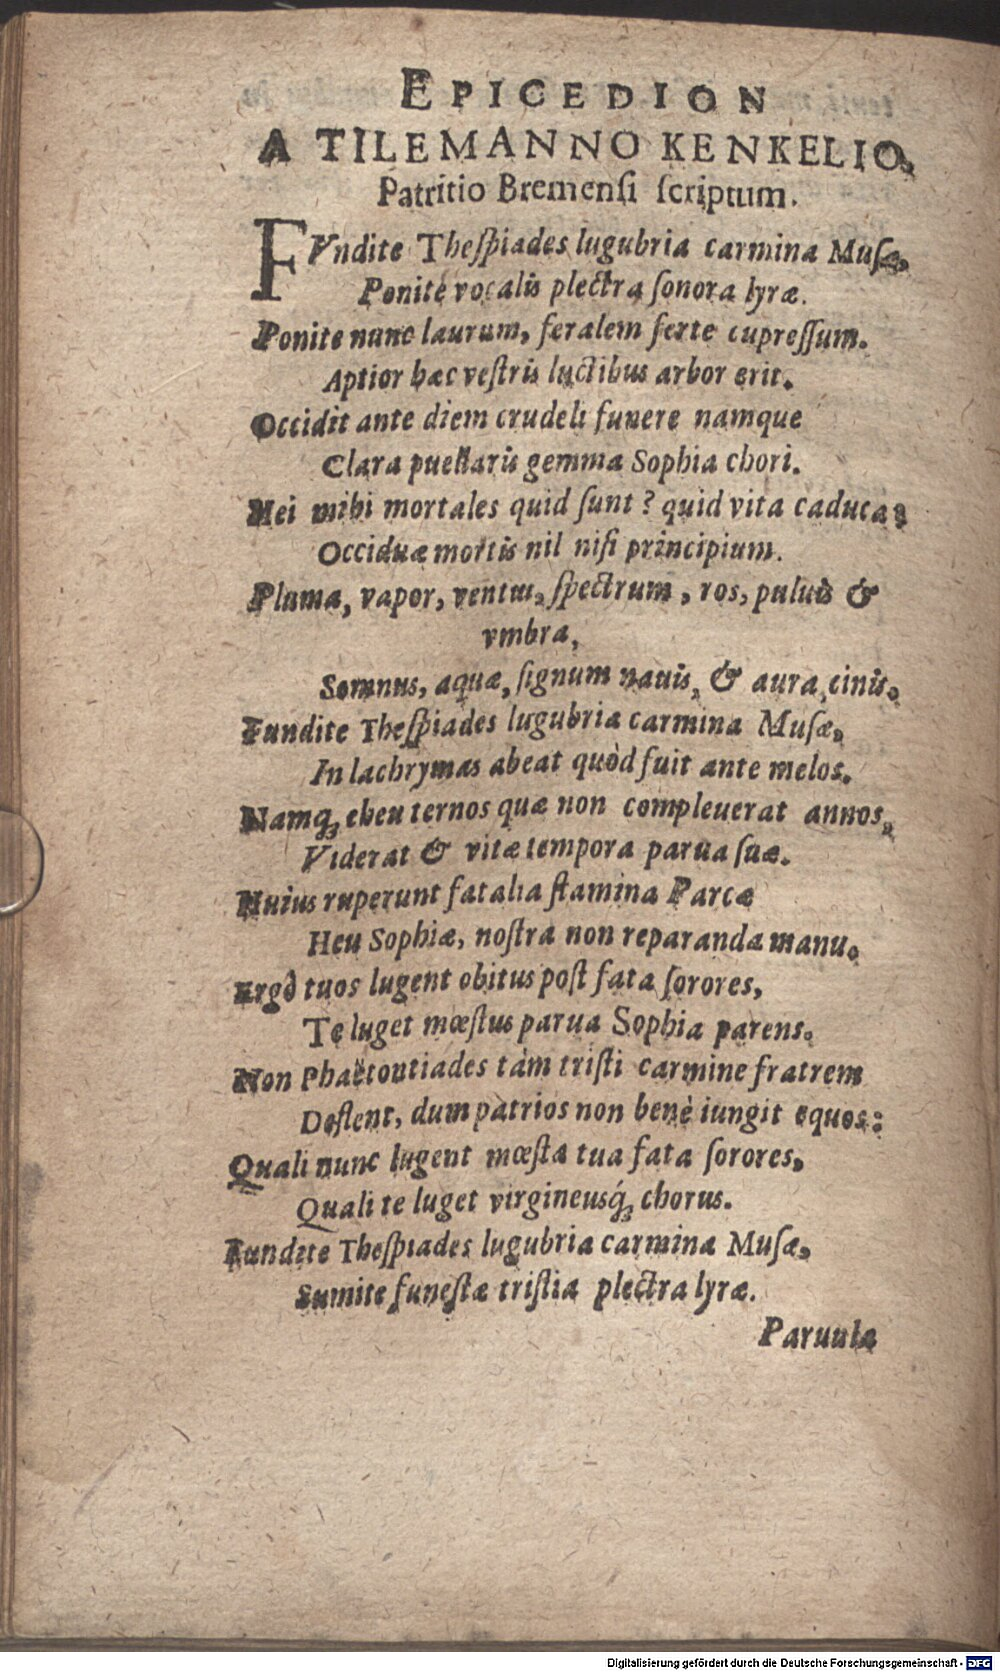 EPICEDION
A TILEMANNO KENKELIO,
Patritio Bremenſi ſcriptum.
FVndite Theſpiades lugubria carmina Muſæ,
Ponite vocalis plectra ſonora lyræ.
Ponite nunc laurum, feralem ferte cupreſſum.
Aptior hæc veſtris luctibus arbor erit.
Occidit ante diem crudeli funere namque
Clara puellaris gemma Sophia chori.
Hei mihi mortales quid ſunt? quid vita caduca?
Occiduæ mortis nil niſi principium.
Pluma, vapor, ventus, ſpectrum, ros, puluis &
vmbra,
Somnus, aquæ, ſignum nauis, & aura, cinis.
Fundite Theſpiades lugubria carmina Muſæ,
In lachrymas abeat quòd fuit ante melos.
Namq; eheu ternos quæ non compleuerat annos,
Viderat & vitæ tempora parua ſuæ.
Huius ruperunt fatalia ſtamina Parcæ
Heu Sophiæ, noſtra non reparanda manu.
Ergò tuos lugent obitus poſt fata ſorores,
Te luget mœſtus parua Sophia parens.
Non Phaëtontiades tàm triſti carmine fratrem
Deflent, dum patrios non benè iungit equos:
Quali nunc lugent mœſta tua fata ſorores,
Quali te luget virgineusq́; chorus.
Fundite Theſpiades lugubria carmina Muſæ,
Sumite funeſtæ triſtia plectra lyræ.
Paruula
Digitalisierung gefördert durch die Deutsche Forschungsgemeinschaft - DFG